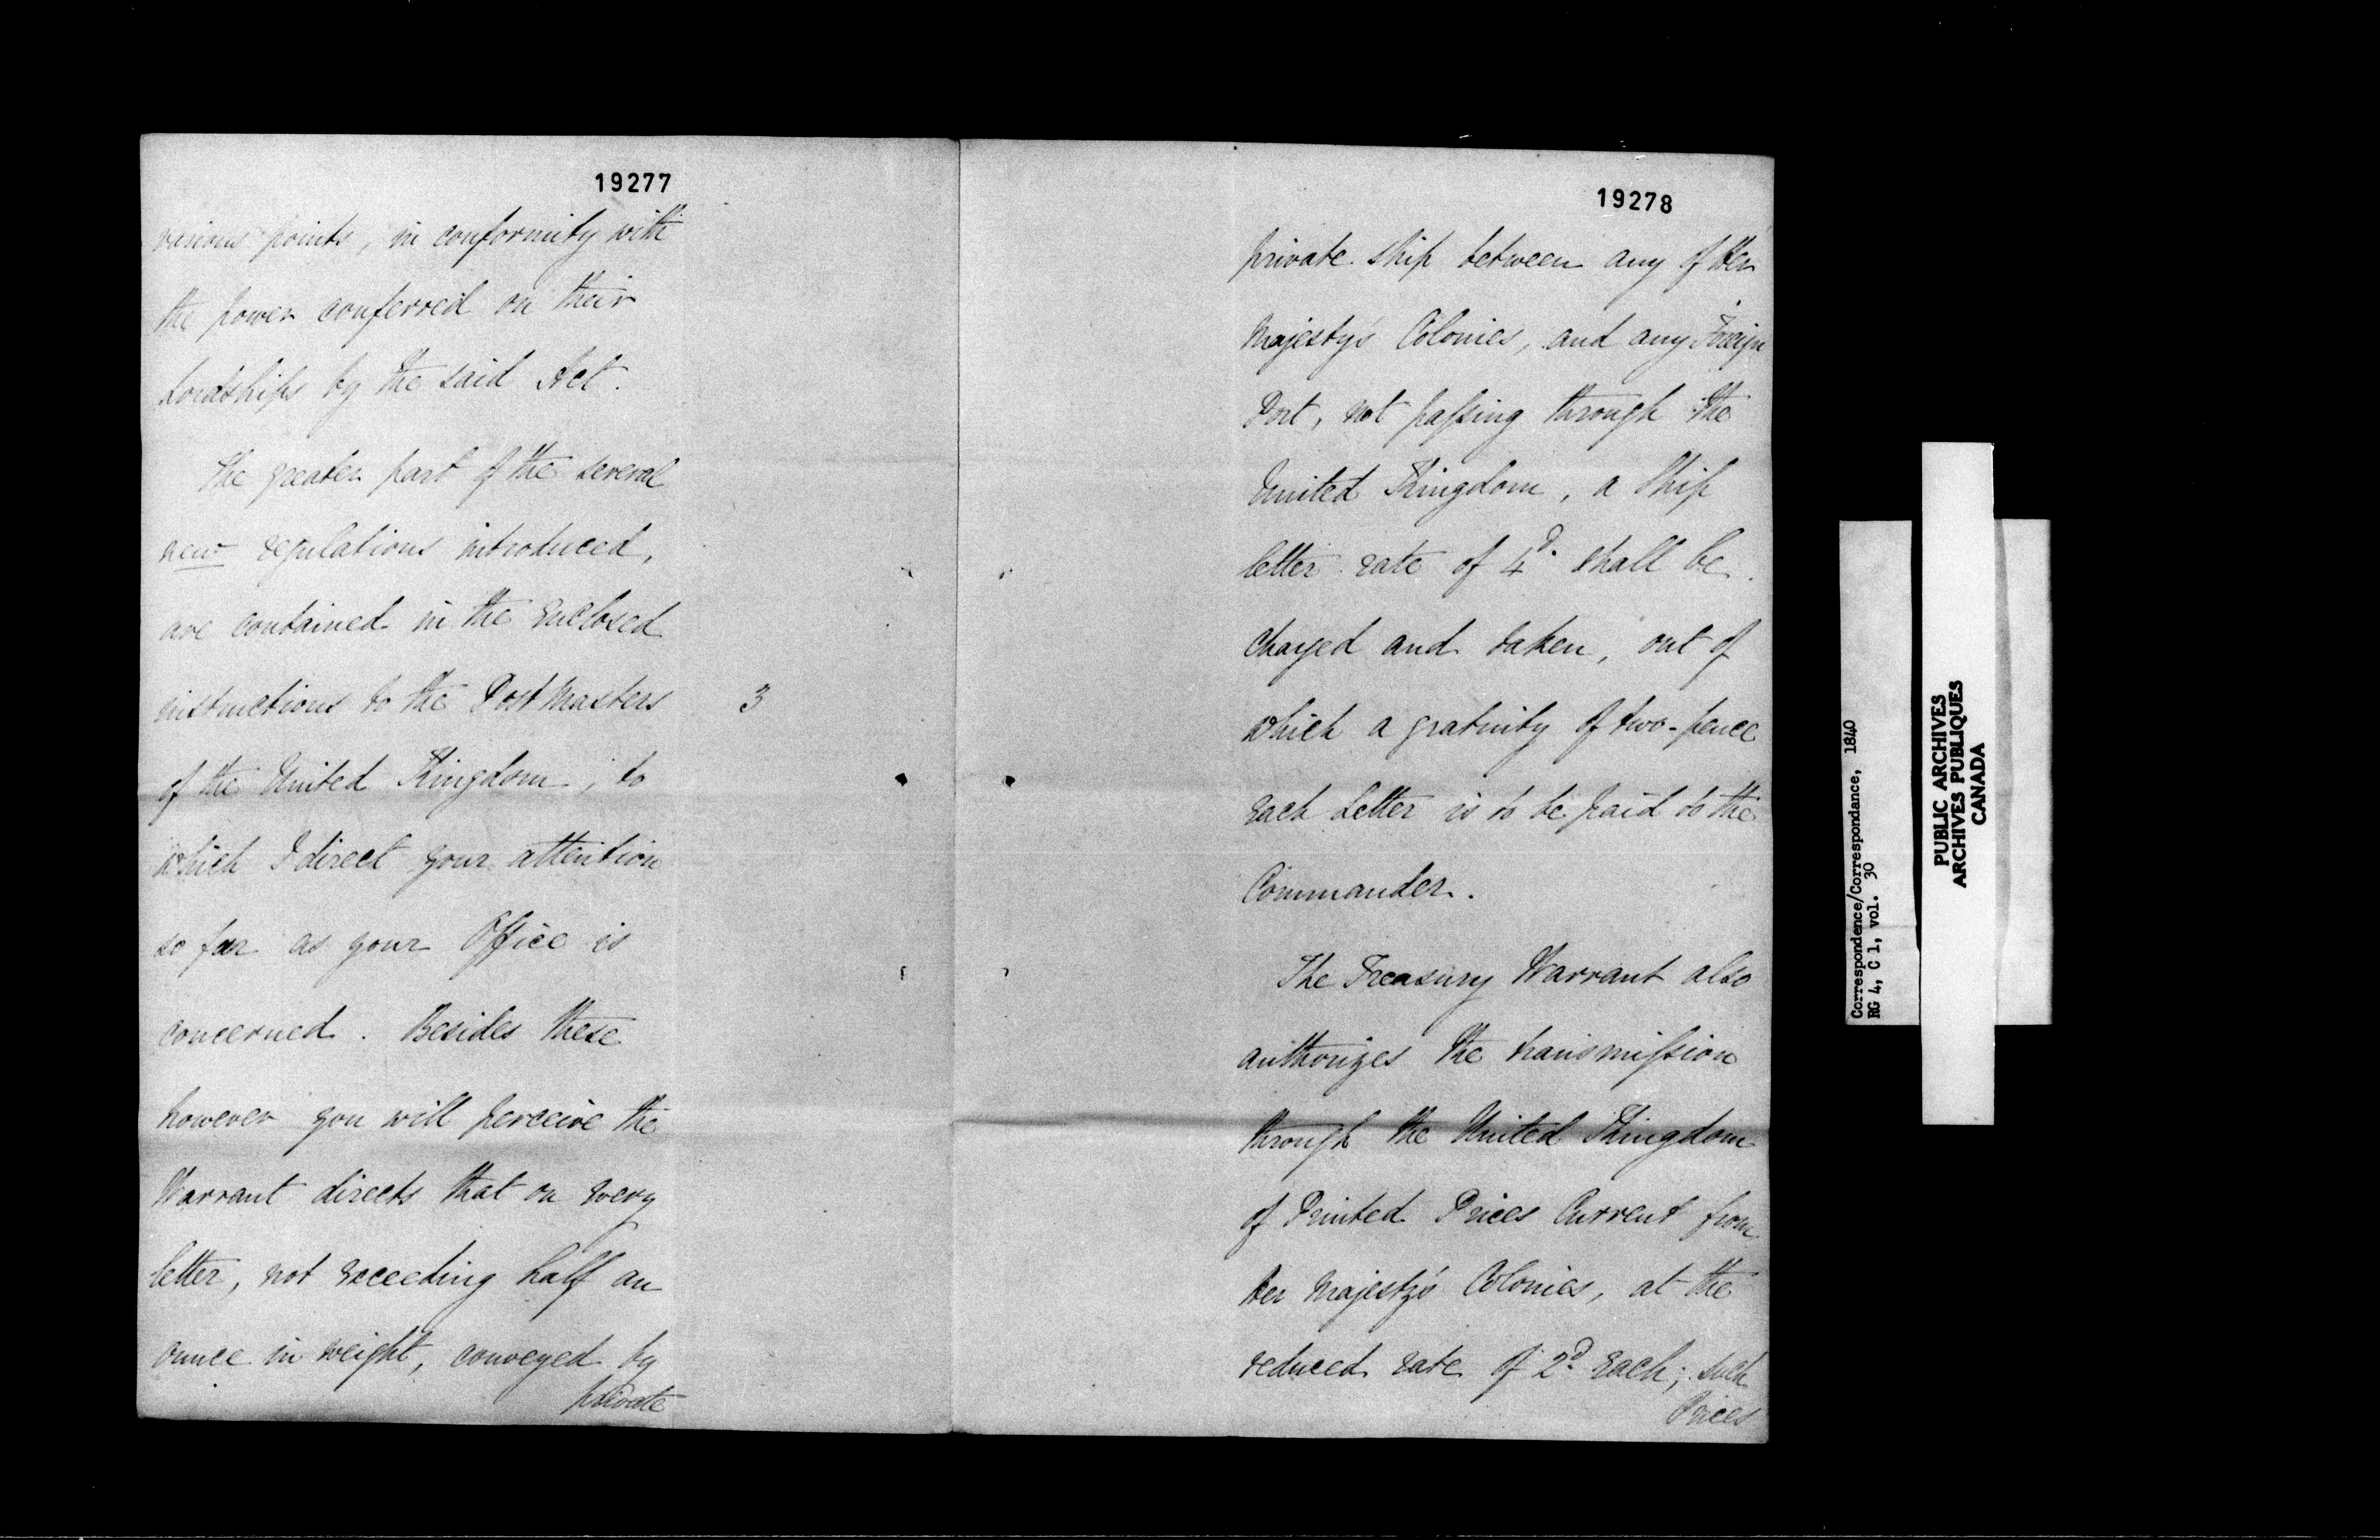 19277
various points, in conformity with
the power conferred on their
Lordships by the said Act.
The greater part of the several
new regulations introduced,
are contained in the enclosed
instructions to the Post Masters
3
of the United Kingdom, to
which I direct your attention
so far as your Office is
concerned. Besides these
however you will perceive the
Warrant directs that on every
letter, not exceeding half an
ounce in weight, conveyed by
private
19278
private ship between any of Her
Majesty's Colonies, and any Foreign
Port, not passing through the
United Kingdom, a Ship
letter rate of 4d. shall be
charged and taken, out of
which a gratuity of two-pence
each Letter is to be paid to the
Commander.
The Treasury Warrant also
authorizes the transmission
through the United Kingdom
of Printed Prices Current from
Her Majesty's Colonies, at the
reduced rate of 2d. each; such
Prices
Correspondence/Correspondance, 1840
RG 4, C 1, vol. 30
PUBLIC ARCHIVES
ARCHIVES PUBLIQUES
CANADA